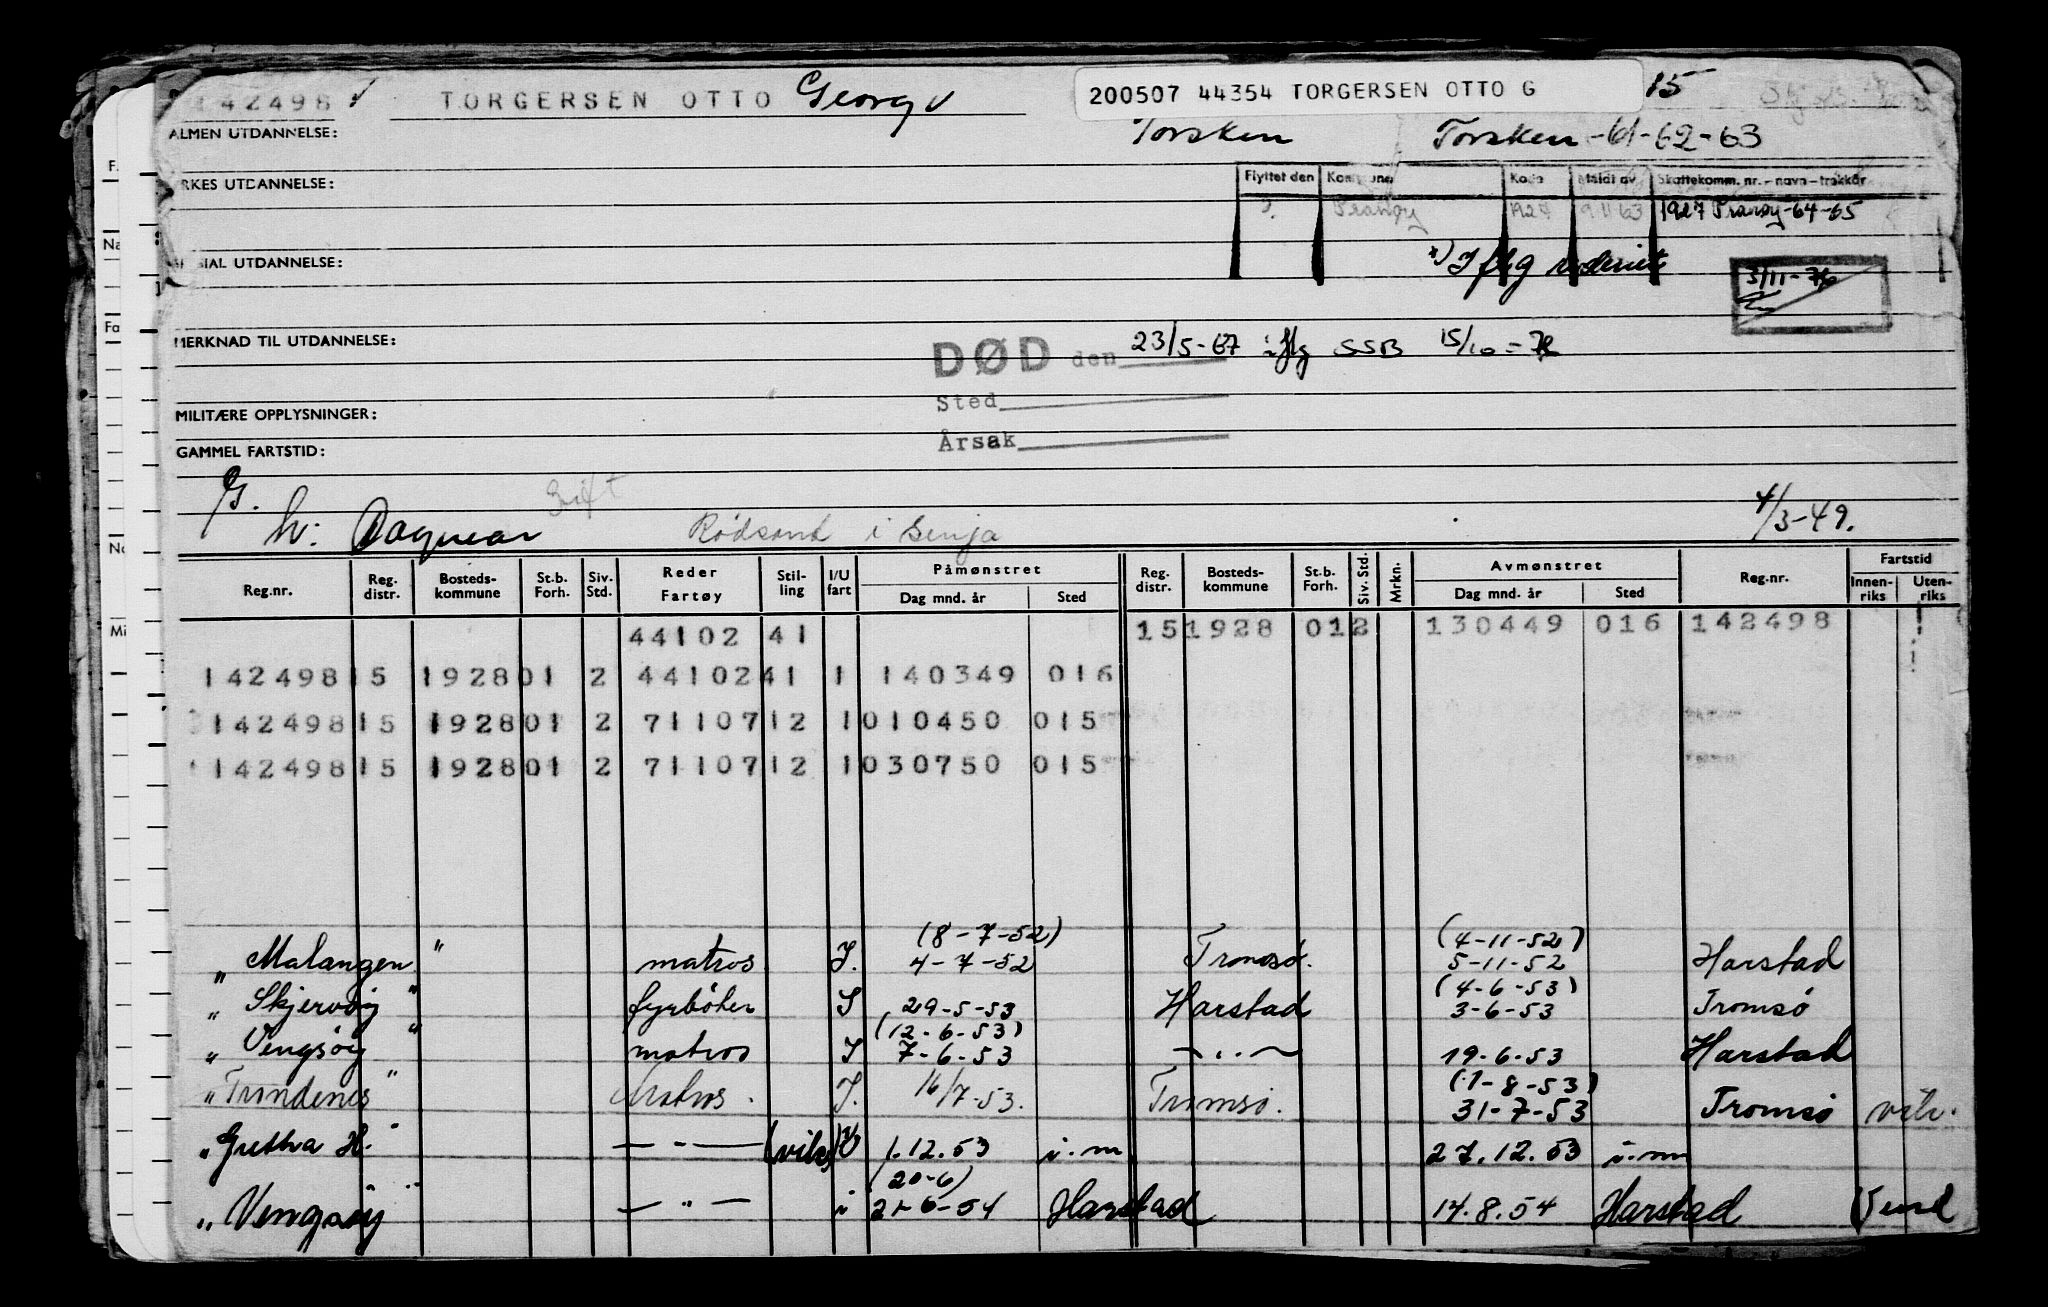 142498 √ TORGERSEN OTTO Georg √ 200507 44354 TORGERSEN OTTO G 15
ALMEN UTDANNELSE: Torsken Torsken -61-62-63
RKES UTDANNELSE: Flyttet den Kommune Kode Meldt av Skattekomm. nr. - navn - trekkår
Tranøy 1927 9 11 63 1927 Tranøy-64-65
SIAL UTDANNELSE: x) Iflg rederiet
3/11-76
MERKNAD TIL UTDANNELSE: DØD den 23/5-67 iflg SSB 15/10-76
Sted
MILITÆRE OPPLYSNINGER:
Årsak
GAMMEL FARTSTID:
G. Gift 4/3-49.
h: Dagmar Rødsand i Senja
Reg.nr. Reg. distr. Bosteds-kommune St.b. Forh. Siv. Std. Reder Fartøy Stil-ling I/U fart Påmønstret Dag mnd. år Sted Reg. distr. Bosteds-kommune St.b. Forh. Siv. Std. Mrkn. Avmønstret Dag mnd. år Sted Reg.nr. Fartstid Innen-riks Uten-riks
44102 41 15 1928 01 2 130449 016 142498
142498 15 1928 01 2 44102 41 1 140349 016
142498 15 1928 01 2 71107 12 1 010450 015
142498 15 1928 01 2 71107 12 1 030750 015
(8-7-52) (4-11-52)
" Malangen " matros I. 4-7-52 Tromsø. 5-11-52 Harstad
(4-6-53)
" Skjervøy " fyrbøter I 29-5-53 Harstad 3-6-53 Tromsø
(12-6-53)
" Vengsøy " matros I 7-6-53 — " — 19-6-53 Harstad
(1-8-53)
" Trondenes " Matros. I. 16/7-53. Tromsø. 31-7-53 Tromsø vik.
" Gretha H. " — " — (vik) U 1.12.53 i.m 27.12.53 i.m
(20-6)
" Vengsøy " — " — i 21-6-54 Harstad 14.8.54 Harstad